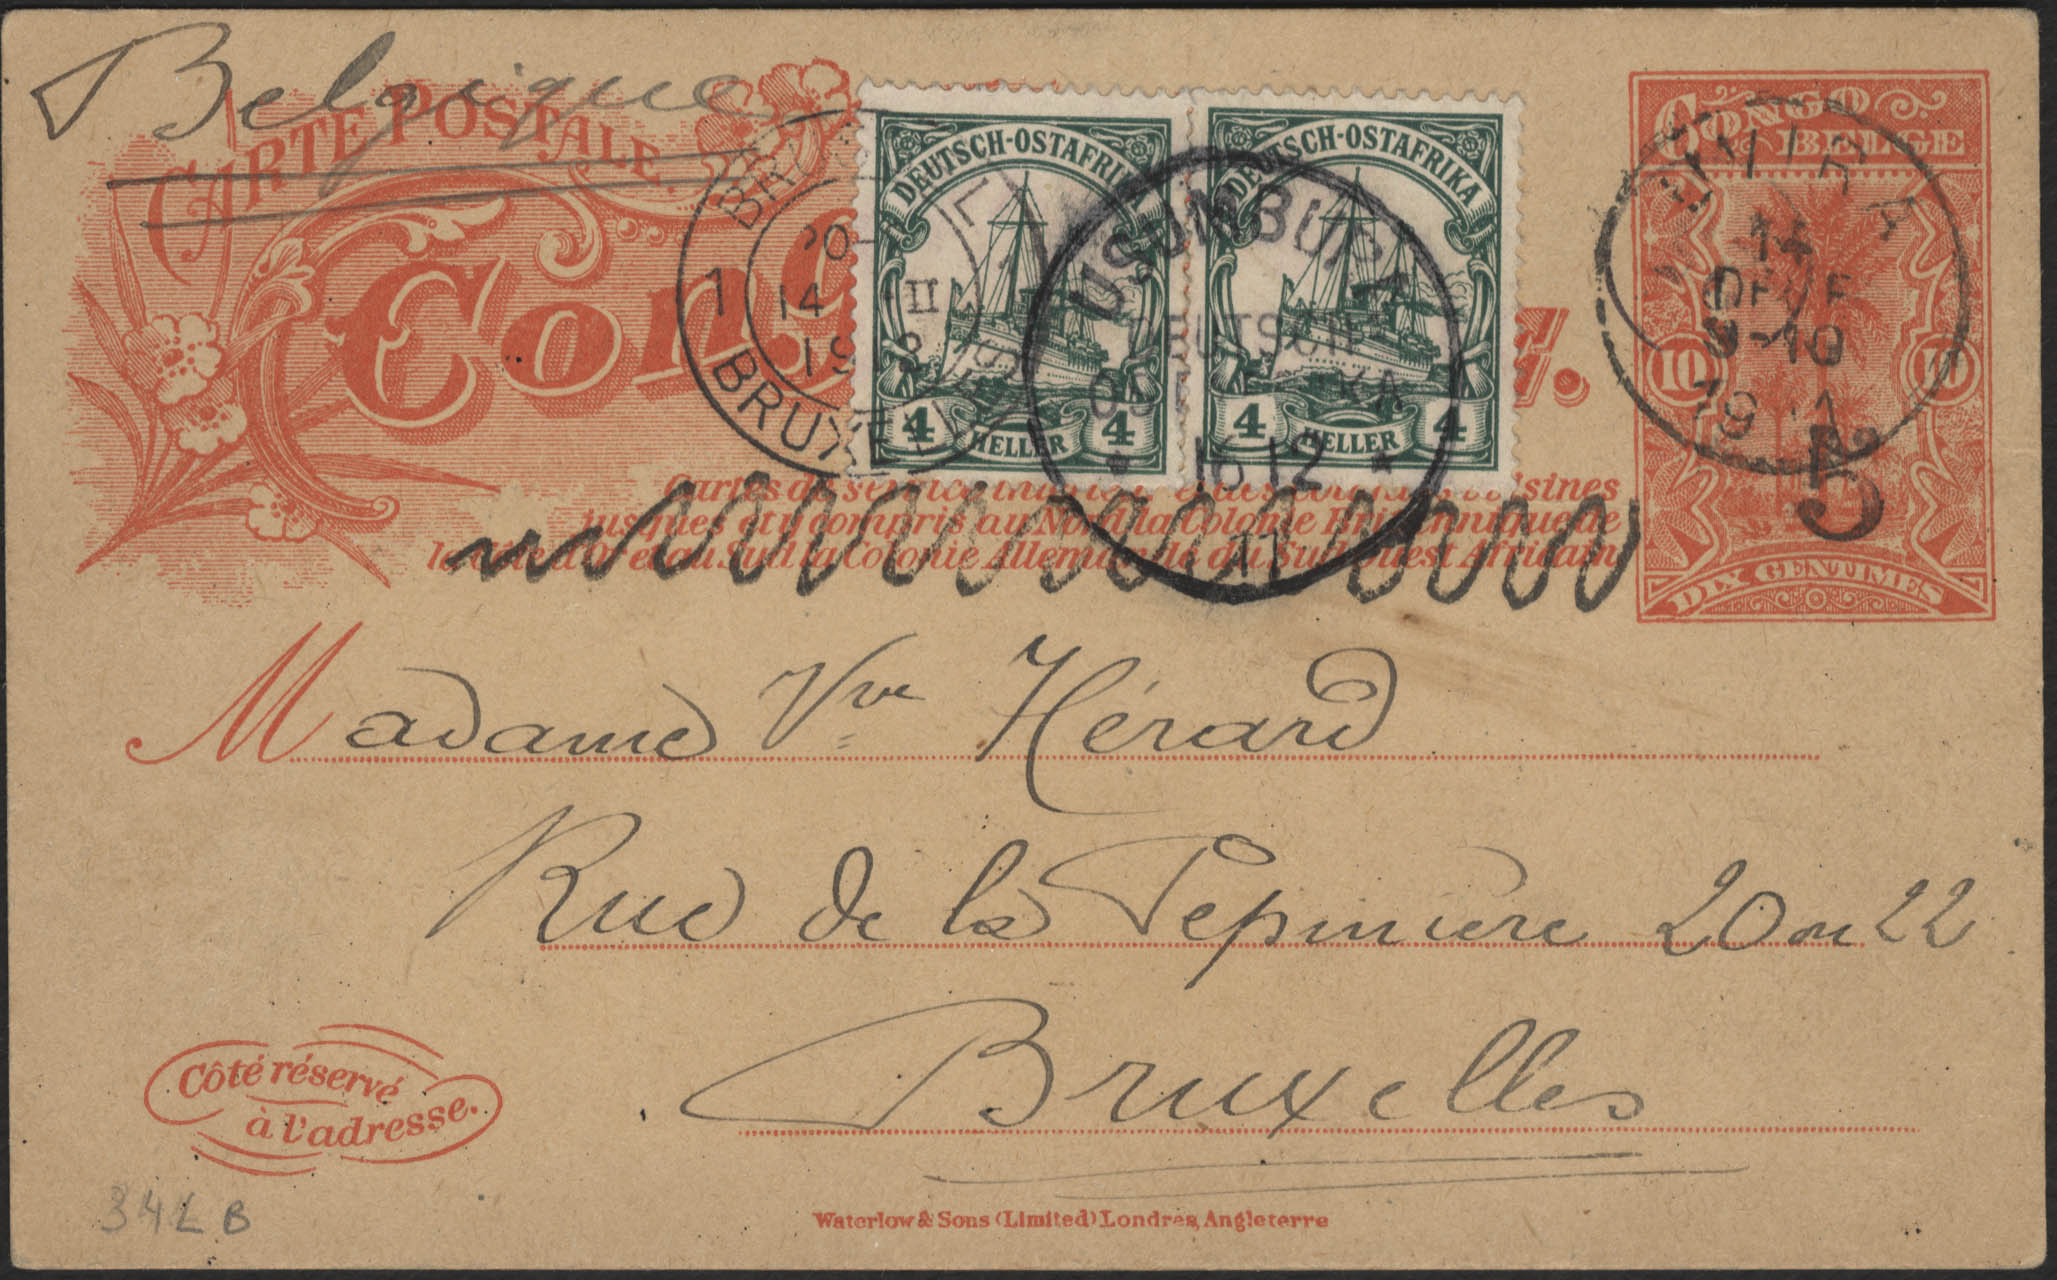 Belgique
CARTE POSTALE.
Con
DEUTSCH-OSTAFRIKA
4 HELLER 4
DEUTSCH-OSTAFRIKA
4 HELLER 4
USUMBURA
DEUTSCH
16 12
11
BRUXELLES
1
14 II
19
BRUXELLES
CONGO
BELGE
10 10
DIX CENTIMES
14
9-10
19
5
Cartes de service
jusques et y compris au Nord la Colonie Britannique de
la Côte d'Or et au Sud la Colonie Allemande du Sud-Ouest Africain
Madame Vve Hérard
Rue de la Pépinière 20 ou 22
Bruxelles
Côté réservé
à l'adresse.
34 L B
Waterlow & Sons (Limited) Londres, Angleterre